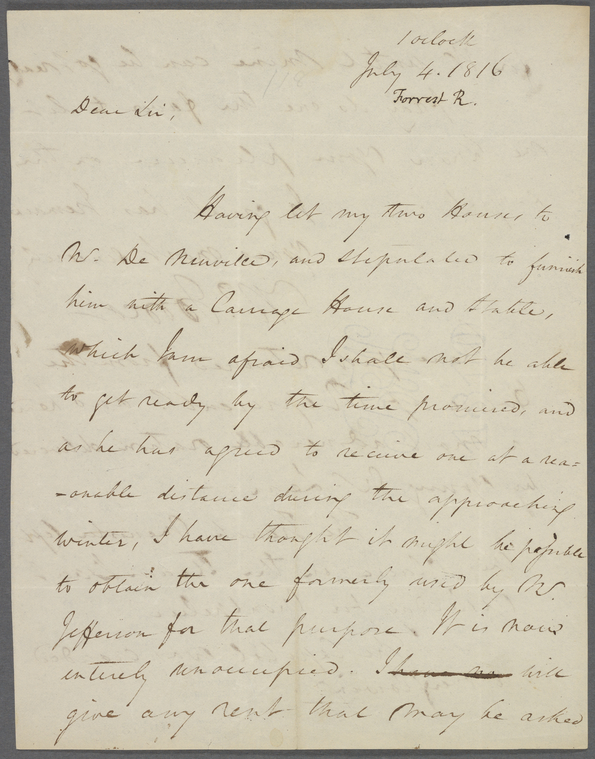 1 oclock
July 4. 1816
Forrest R.
Dear Sir,
Having let my two Houses to
Mr. De Neuville, and stipulated to furnish
him with a Carriage House and stable,
which I am afraid I shall not be able
to get ready by the time promised, and
as he has agreed to receive one at a rea=
-onable distance during the approaching
winter, I have thought it might be possible
to obtain the one formerly used by Mr.
Jefferson for that purpose. It is now
entirely unoccupied. I have no will
give any rent that may be asked